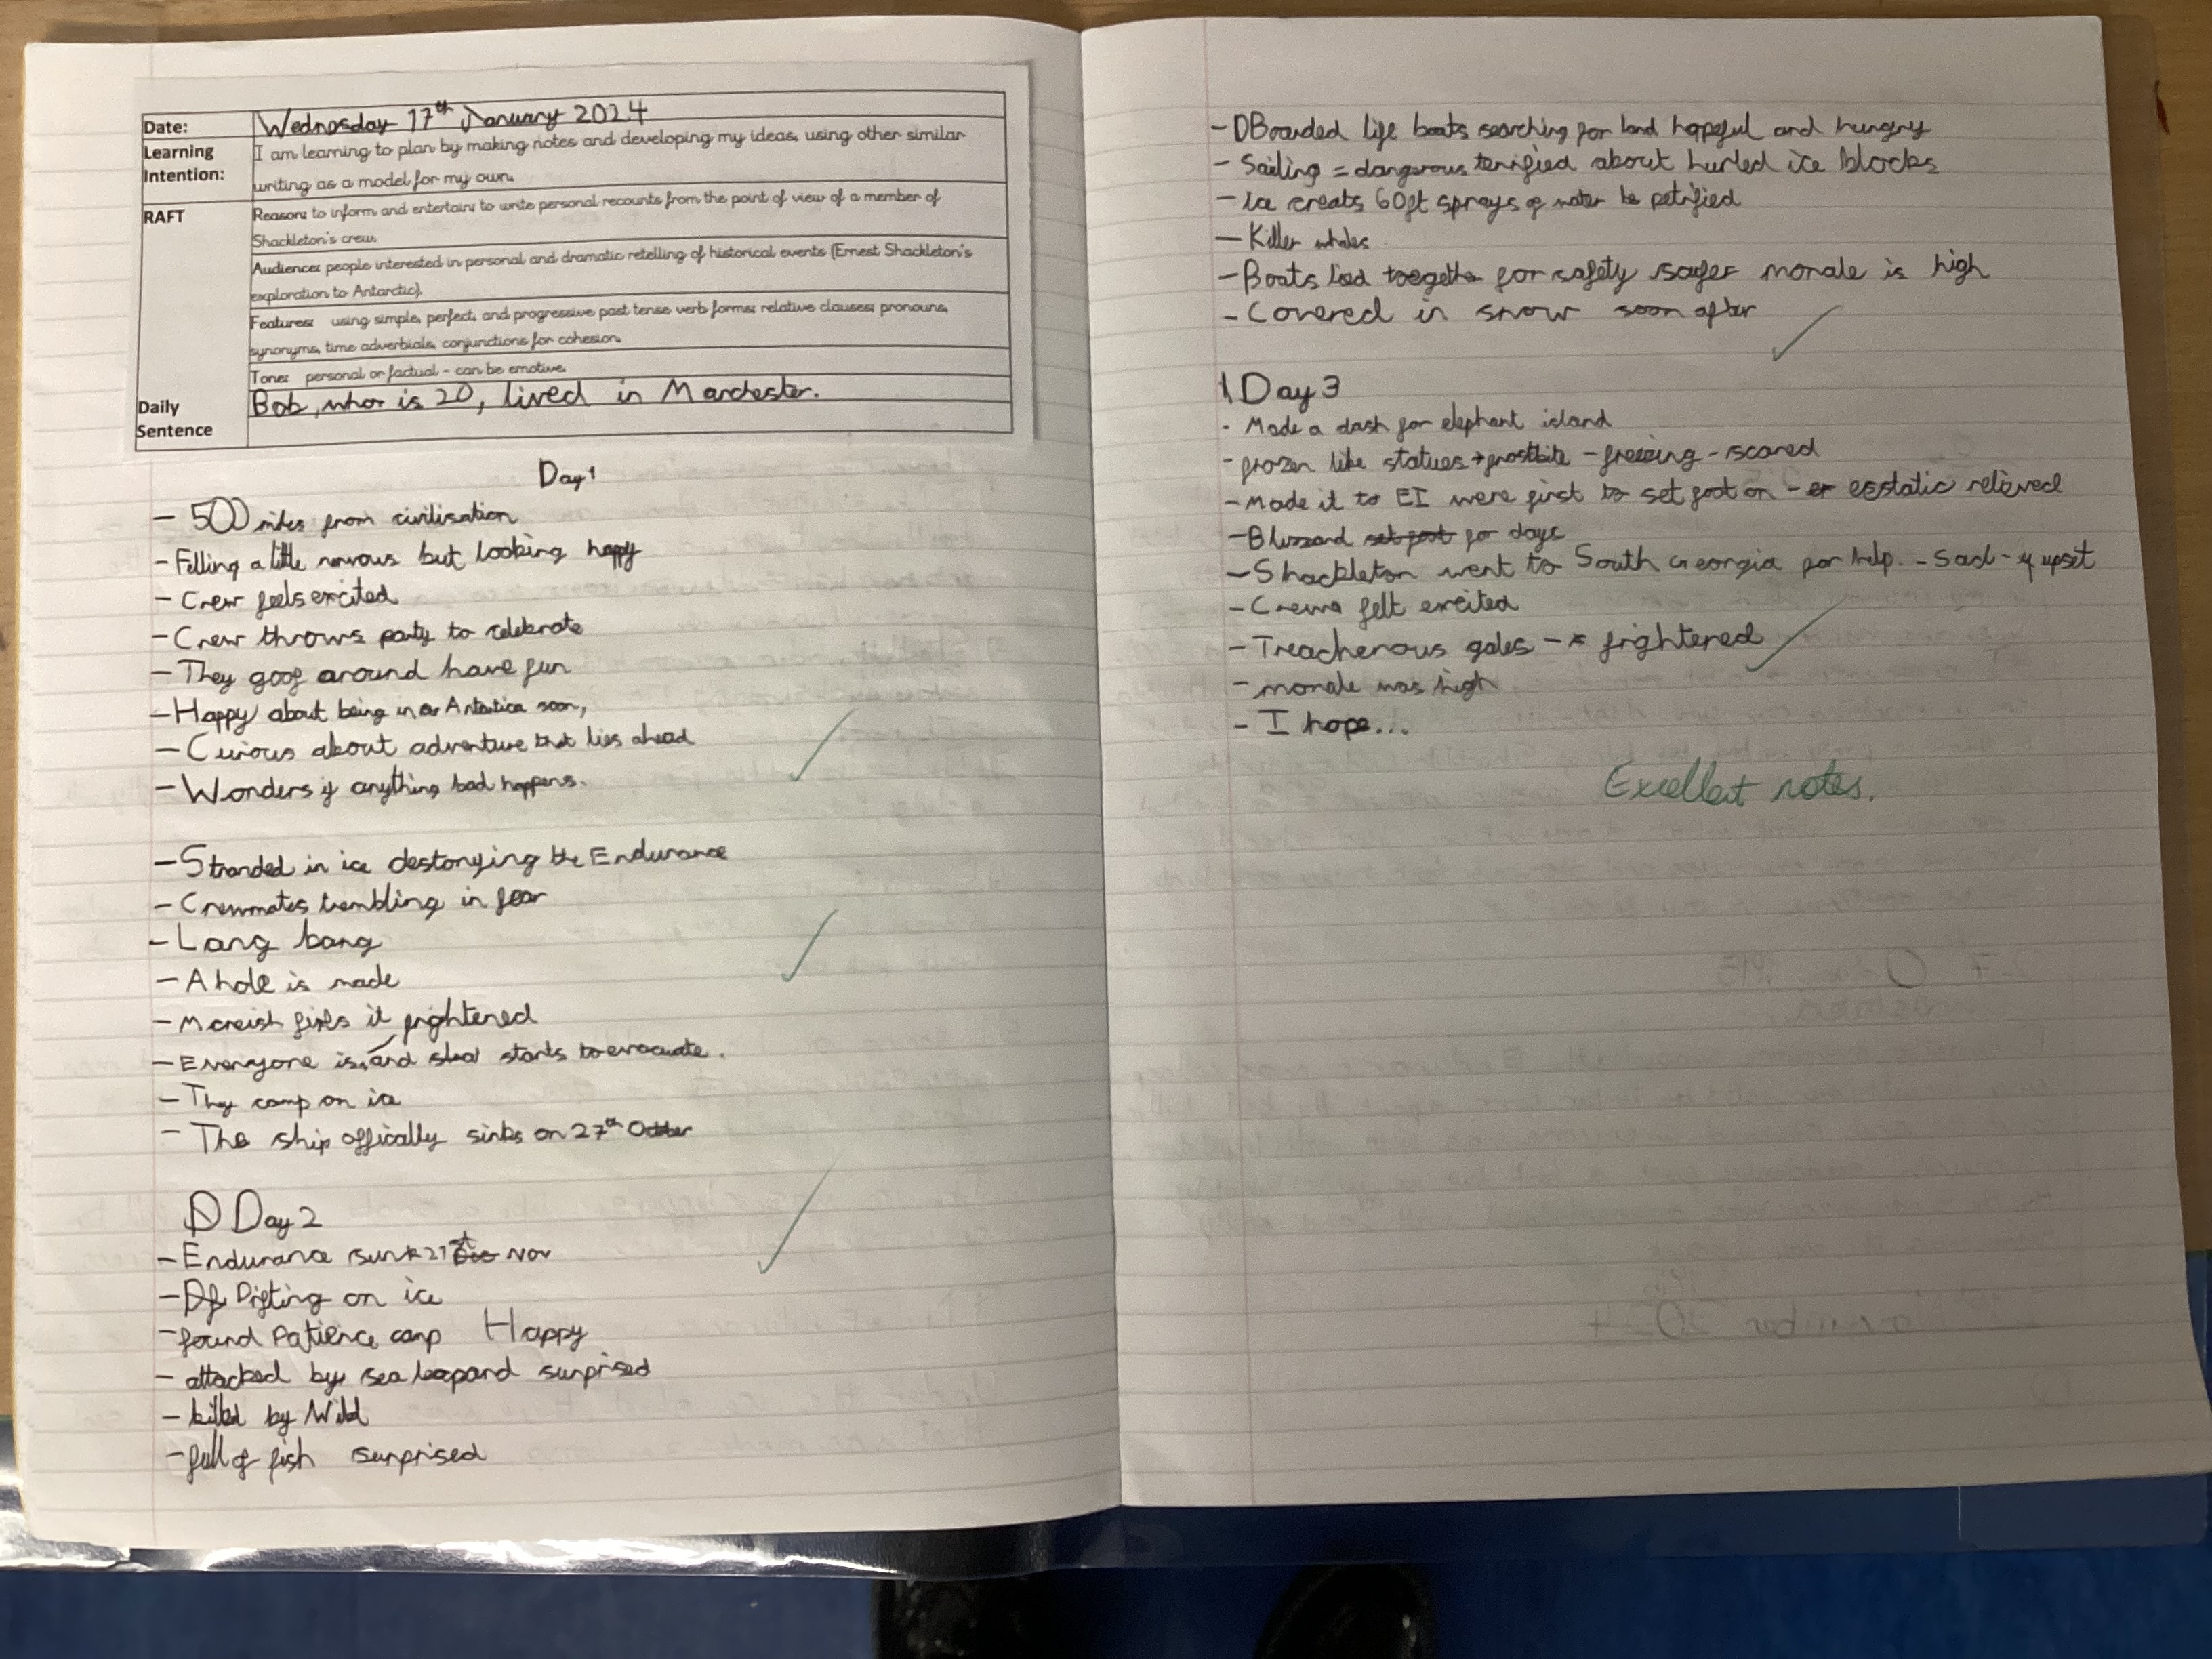 Date: Wednesday 17th January 2024
Learning Intention: I am learning to plan by making notes and developing my ideas, using other similar
writing as a model for my own.
RAFT Reason: to inform and entertain; to write personal recounts from the point of view of a member of
Shackleton's crew.
Audience: people interested in personal and dramatic retelling of historical events (Ernest Shackleton's
exploration to Antarctic).
Features: using simple, perfect, and progressive past tense verb forms; relative clauses; pronouns,
synonyms, time adverbials, conjunctions for cohesion.
Tone: personal or factual - can be emotive.
Daily Sentence Bob, who is 20, lived in Manchester.
Day 1
- 500 miles from civilisation
- Felling a little nervous but looking happy
- Crew feels excited
- Crew throws party to celebrate
- They goof around have fun
- Happy about being in Antartica soon,
- Curious about adventure that lies ahead
- Wonders if anything bad happens.
- Stranded in ice destonying the Endurance
- Crewmates trembling in fear
- Lang bang
- A hole is made
- Mcreish finds it frightened
- Everyone is and starts to evacuate.
- They camp on ice
- The ship offically sinks on 27th October
Day 2
- Endurance sunk 21st Nov
- Difting on ice
- found Patience camp Happy
- attacked by sea leopard surprised
- killed by Wild
- full of fish surprised
- Boarded life boats searching for land hopeful and hungry
- Sailing = dangerous terrified about hurled ice blocks
- Ice creats 60ft sprays of water petrified
- Killer whales
- Boats tied for safety safer morale is high
- Covered in snow soon after
Day 3
- Made a dash for elephant island
- frozen like statues → frostbite - freezing - scared
- Made it to EI were first to set foot on - esstatic relieved
- Blizzard for days
- Shackleton went to South Georgia for help. - Sad - upset
- Crew felt excited
- Treacherous gales - frightened
- morale was high
- I hope...
Excellent notes.